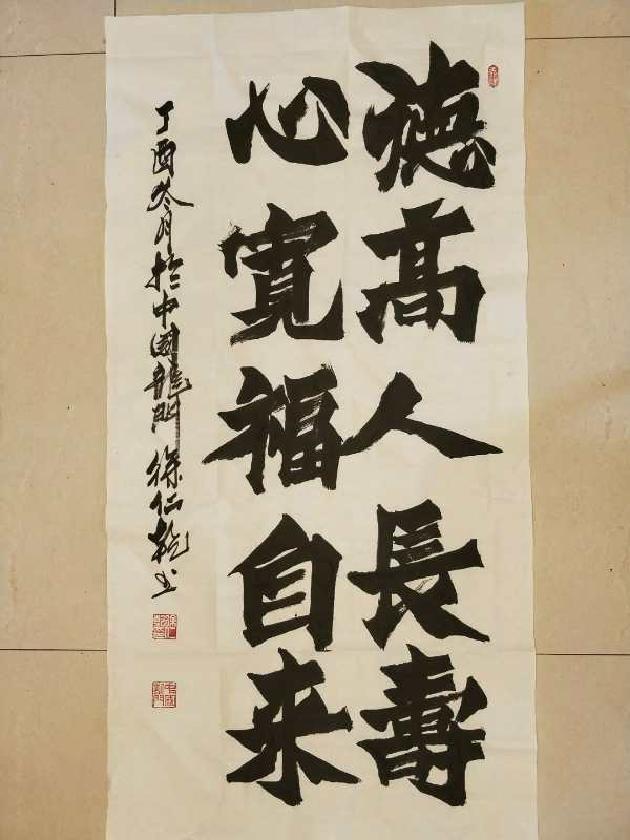 德高人長壽
心寬福自来
丁酉冬月於中國龍門 徐仁乾书